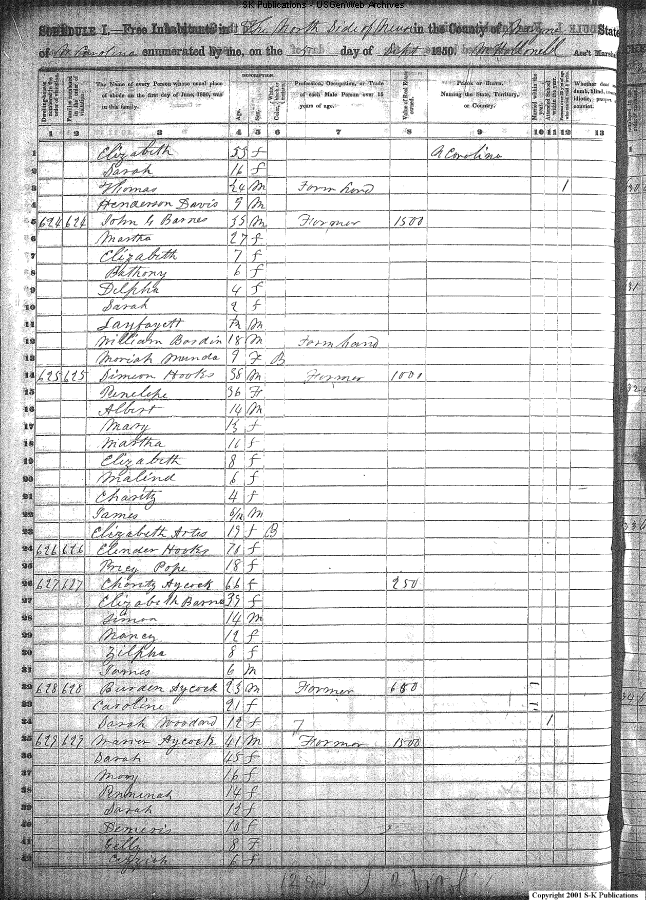 SK Publications - USGenWeb Archives
SCHEDULE I.—Free Inhabitants in The North Side of Neuse in the County of Wayne State
of N. Carolina enumerated by me, on the day of Sept 1850. Ass't Marshal
DESCRIPTION.
Dwelling-houses numbered in the order of visitation.
Families numbered in the order of visitation.
The Name of every Person whose usual place of abode on the first day of June, 1850, was in this family.
Age. Sex. Color
Profession, Occupation, or Trade of each Male Person over 15 years of age.
Value of Real Estate owned.
PLACE OF BIRTH, Naming the State, Territory, or Country.
Married within the year.
Attended School within the year.
Whether deaf and dumb, blind, insane, idiotic, pauper, or convict.
1 2 3 4 5 6 7 8 9 10 11 12 13
1 Elizabeth 55 f N Carolina
2 Sarah 16 f
3 Thomas 24 M Farm hand 1
4 Henderson Davis 9 M
5 624 624 John G Barnes 35 M Farmer 1500
6 Martha 27 f
7 Elizabeth 7 f
8 Bathony 6 f
9 Delpha 4 f
10 Sarah 2 f
11 Layfayett M
12 William Bardin 18 M Farm hand
13 Moriah Munda 9 F B
14 625 625 Simeon Hooks 38 M Farmer 1000
15 Penelope 36 F
16 Albert 14 M
17 Mary 13 f
18 Martha 11 f
19 Elizabeth 8 f
20 Malind 6 f
21 Charity 4 f
22 James M
23 Elizabeth Artis 19 f B
24 626 626 Elender Hooks 70 f
25 Pricy Pope 18 f
26 627 627 Charity Aycock 66 f 250
27 Elizabeth Barnes 39 f
28 Simon 14 M
29 Nancy 12 f
30 Zilpha 8 f
31 James 6 M
32 628 628 Burden Aycock 23 M Farmer 600 1
33 Caroline 21 f 1
34 Sarah Woodard 12 f 1
35 629 629 Warren Aycock 41 M Farmer 1500
36 Sarah 45 f
37 Mary 16 f
38 Penninah 14 f
39 Sarah 12 f
40 Demeris 10 f
41 8 F
42 6 f
Copyright 2001 S-K Publications